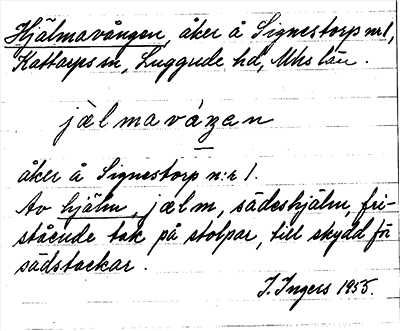 Hjälmavången, åker å Signestorp nr 1,
Kattarps sn, Luggude hd, Mhs län.
jælmavåŋan
åker å Signestorp n:r 1.
Av hjälm, jælm, sädeshjälm, fri-
stående tak på stolpar, till skydd för
sädstackar.
I. Ingers 1955.